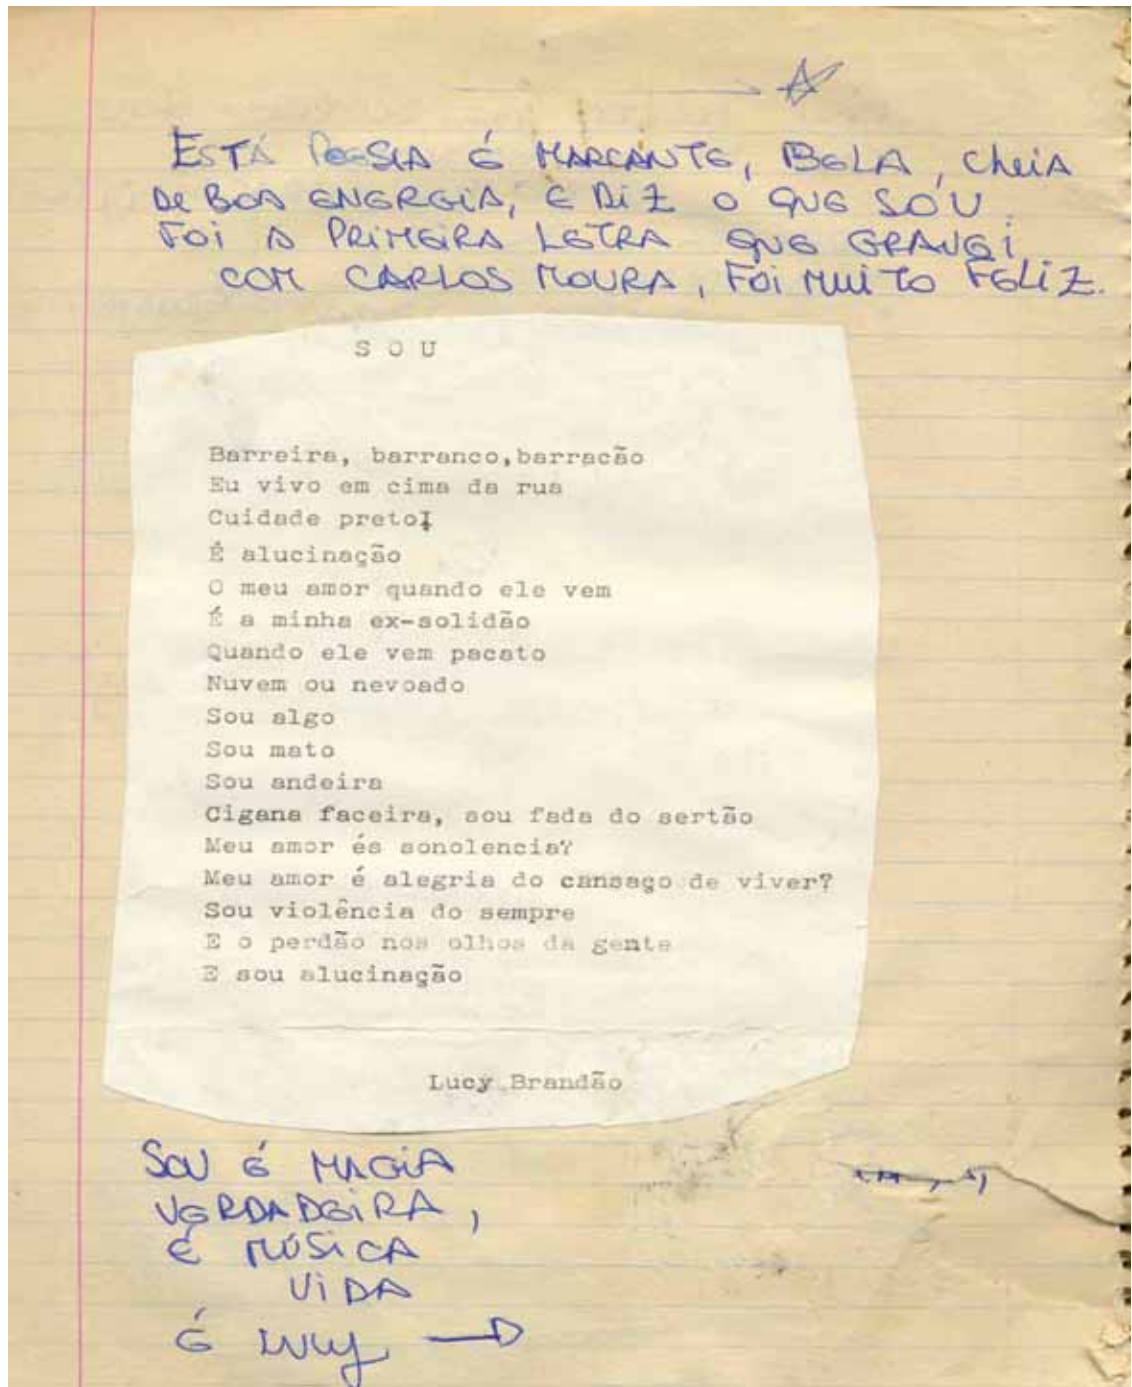 ESTÁ POESIA É MARCANTE, BELA, CHEIA
DE BOA ENERGIA, E DIZ O QUE SOU.
FOI A PRIMEIRA LETRA QUE GRAVEI
COM CARLOS MOURA, FOI MUITO FELIZ.
S O U
Barreira, barranco,barracão
Eu vivo em cima da rua
Cuidade preto!
É alucinação
O meu amor quando ele vem
É a minha ex-solidão
Quando ele vem pacato
Nuvem ou nevoado
Sou algo
Sou mato
Sou andeira
Cigana faceira, sou fada do sertão
Meu amor és sonolencia?
Meu amor é alegria do cansaço de viver?
Sou violência do sempre
E o perdão nos olhos da gente
E sou alucinação
Lucy Brandão
SOU É MAGIA
VERDADEIRA,
É MÚSICA
VIDA
É LUCY